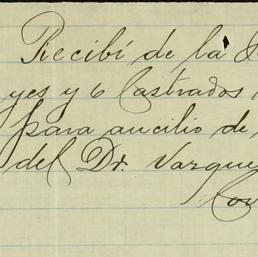 Recibí de la
yes y 6 Castrados
para aucilio de
del Dr. Vazque
Cou